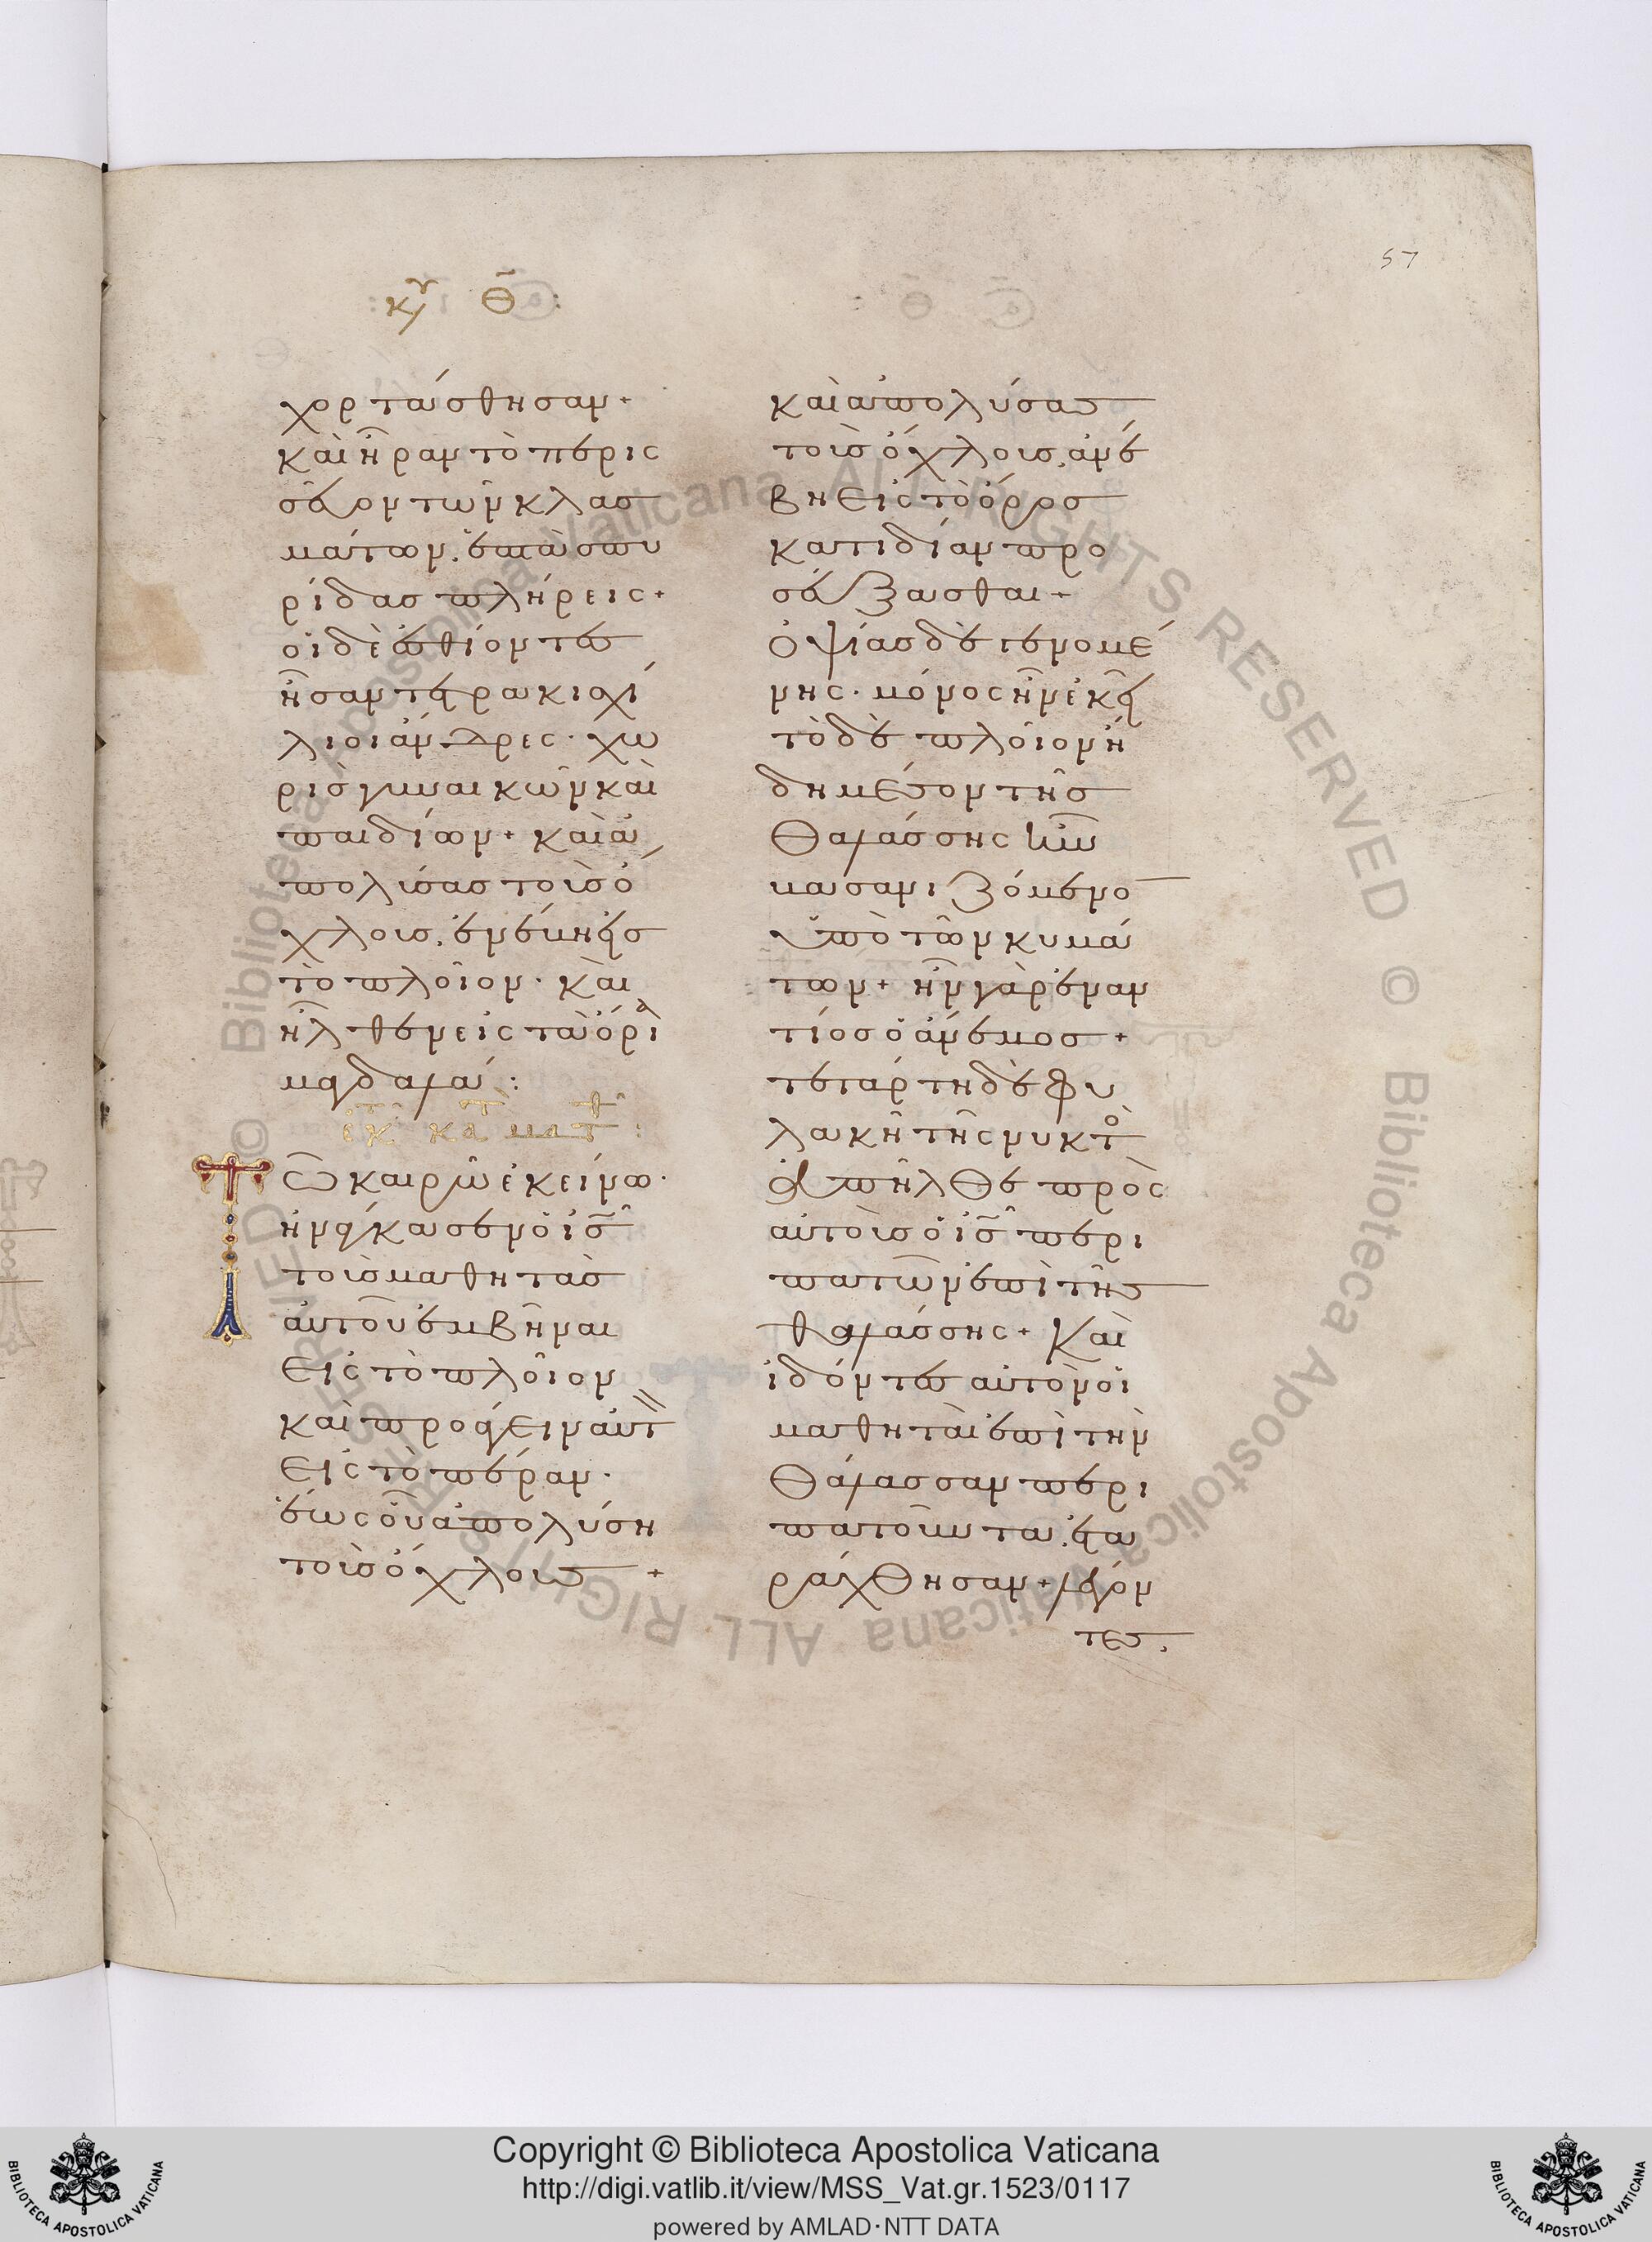 57
κυ θ :
χορτάσθησαν·
καὶ ἦραν τὸ περισ
σεῦον τῶν κλασ
μάτων, ἑπτὰ σπυ
ρίδας πλήρεις+
οἱ δὲ ἐσθίοντες
ἦσαν τετρακισχί
λιοι ἄνδρες· χω
ρὶς γυναικῶν καὶ
παιδίων+ καὶ ἀ
πολύσας τοὺς ὄ
χλους, ἐνέβη εἰς
τὸ πλοῖον· καὶ
ἦλθεν εἰς τὰ ὅρια
μαγδαλά:
ἐκ κατ ματθ :
Τῶ καιρῶ ἐκείνω·
ἠνάγκασεν ὁ ἰς
τοὺς μαθητὰς
αὐτοῦ ἐμβῆναι
εἰς τὸ πλοῖον
καὶ προάγειν αὐτ
εἰς τὸ πέραν·
ἕως οὗ ἀπολύση
τοὺς ὄχλους +
καὶ ἀπολύσας
τοὺς ὄχλους, ἀνέ
βη εἰς τὸ ὄρος
κατιδίαν προ
σεύξασθαι+
Ὀψίας δὲ γενομέ
νης· μόνος ἦν ἐκεῖ
τὸ δὲ πλοῖον ἤ
δη μέσον τῆς
θαλάσσης ἦν
βασανιζόμενο
ὑπὸ τῶν κυμά
των+ ἦν γὰρ ἐναν
τίος ὁ ἄνεμος+
τετάρτη δὲ φυ
λακῆ τῆς νυκτὸ
ἀπῆλθε πρὸς
αὐτοὺς ὁ ἰς περι
πατῶν ἐπὶ τῆς
θαλάσσης+ Καὶ
ἰδόντες αὐτὸν οἱ
μαθηταὶ ἐπὶ τὴν
θάλασσαν περι
πατοῦντα, ἐτα
ράχθησαν+ λέγον
τες.
Copyright © Biblioteca Apostolica Vaticana
http://digi.vatlib.it/view/MSS_Vat.gr.1523/0117
powered by AMLAD·NTT DATA